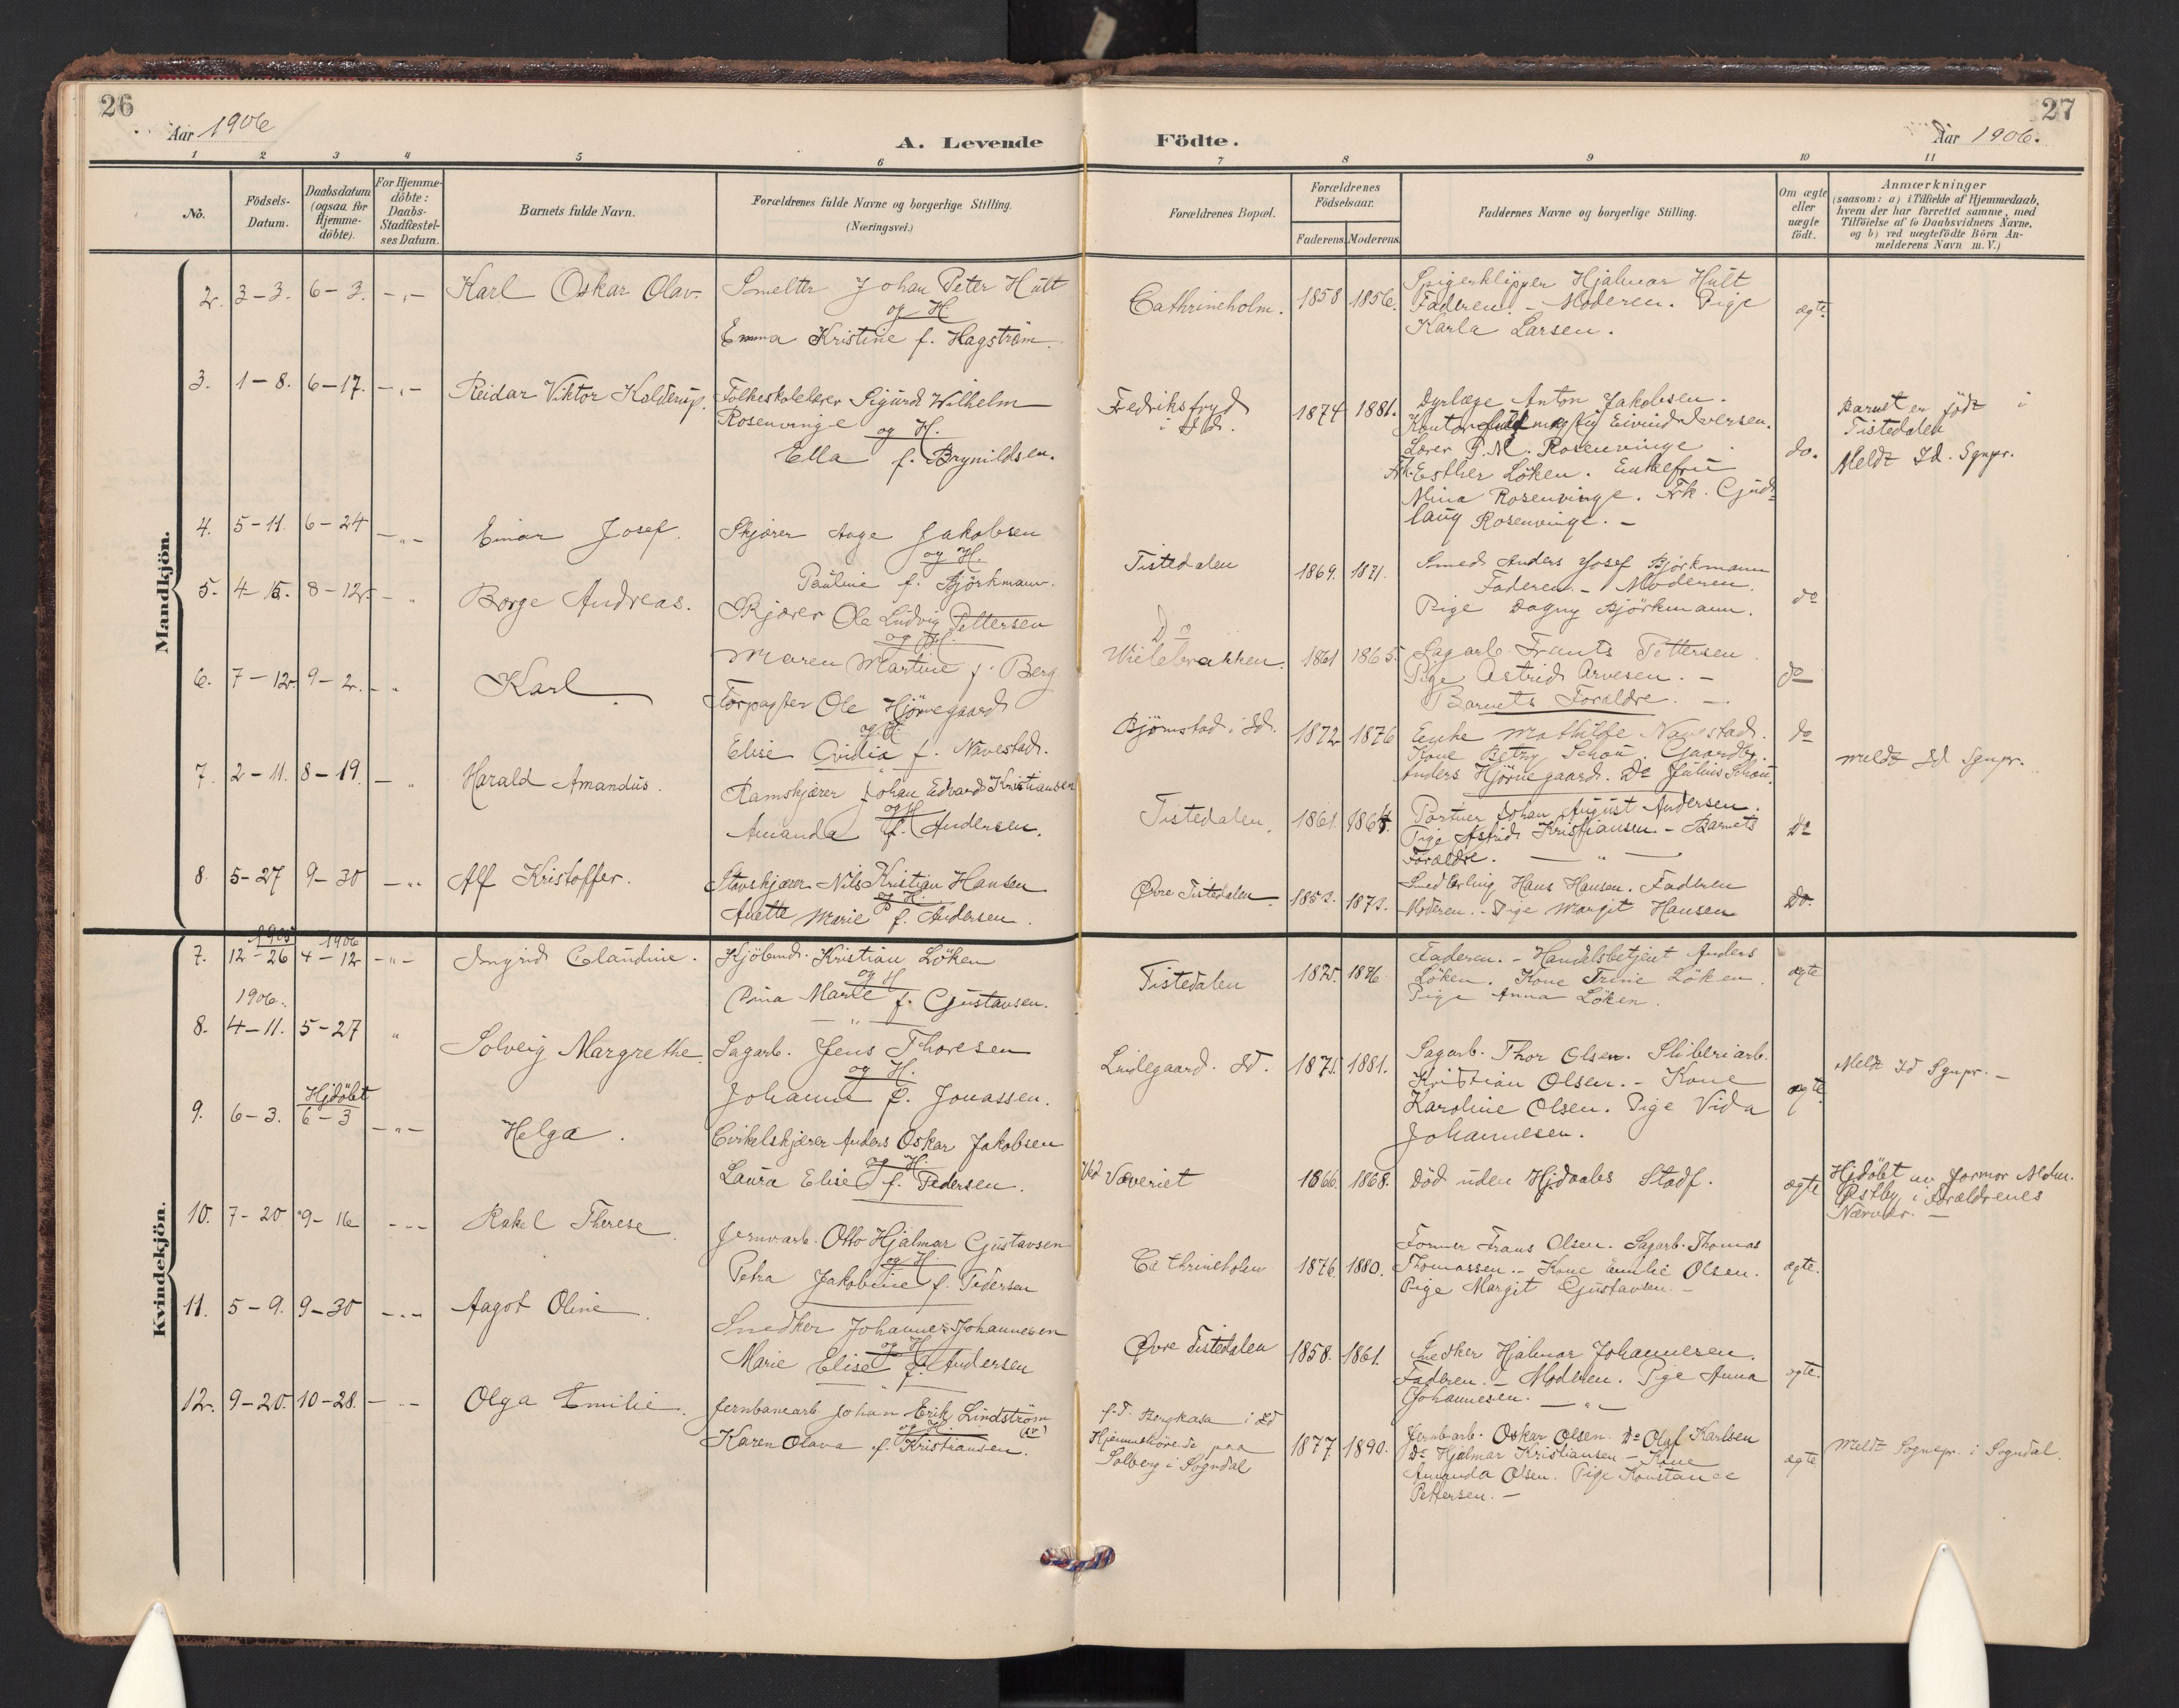 26
27
Aar 1906
A. Levende Födte.
Aar 1906.
1 2 3 4 5 6 7 8 9 10 11
No.
Födsels-
Datum.
Daabsdatum
(ogsaa for
Hjemme-
döbte).
For Hjemme-
döbte:
Daabs-
Stadfæstel-
ses Datum.
Barnets fulde Navn.
Forældrenes fulde Navne og borgerlige Stilling.
(Næringsvei.)
Forældrenes Bopæl.
Forældrenes
Födselsaar.
Faderens. Moderens.
Faddernes Navne og borgerlige Stilling.
Om ægte
eller
uægte
födt.
Anmærkninger
(saasom: a) i Tilfælde af Hjemmedaab,
hvem der har forrettet samme, med
Tilföielse af to Daabsvidners Navne.
og b) ved uægtefödte Börn An-
melderens Navn m. V.)
Mandkjön.
2. 3-3. 6-3. -"- Karl Oskar Olav.
Smelter Johan Peter Hult
og H
Emma Kristine f. Hagström.
Cathrineholm. 1858 1856.
Spigerklipper Hjalmar Hult
Faderen. - Moderen. Pige
Karla Larsen.
ægte.
3. 1-8. 6-17. -"- Reidar Viktor Kolderup.
Folkeskolelærer Sigurd Wilhelm
Rosenvinge og H.
Ella f. Brynildsen.
Fredriksfryd
i Id. 1874 1881.
Dyrlæge Anton Jakobsen.
Kontorfuldmægtig Eivind Iversen.
Lærer P. M. Rosenvinge.
Frk. Esther Löken. Enkefru
Mina Rosenvinge. Frk. Gud-
laug Rosenvinge. -
do.
Barnet er födt i
Tistedalen
Meldt Id. Sgnpr.
4. 5-11. 6-24 -"- Einar Josef.
Skjærer Aage Jakobsen
og H.
Pauline f. Björkmann.
Tistedalen 1869. 1871.
Smed Anders Josef Björkmann
Faderen. - Moderen.
Pige Dagny Björkmann.
do
5. 4-15. 8-12. -" Borge Andreas.
Skjærer Ole Ludvig Pettersen
og H.
Maren Martine f. Berg.
Do
Wielebrakken. 1861 1865.
Sagarb. Frants Pettersen.
Pige Astrid Arvesen. -
Barnets Forældre. -
do
6. 7-12. 9-2. -" Karl.
Forpagter Ole Hjörnegaard
og H.
Elise Ovidia f. Navestad.
Björnstad i Id. 1872 1876
Enke Mathilde Navestad.
Kone Betzy Schou, Gaardbr.
Anders Hjörnegaard. Do Julius Schou.
do
Meldt Id Sgnpr.
7. 2-11. 8-19. -" Harald Amandus.
Ramskjærer Johan Edvard Kristiansen
og H
Amanda f. Andersen.
Tistedalen. 1861. 1864.
Portner Johan August Andersen.
Pige Astrid Kristiansen - Barnets
Forældre. -"-
Do
8. 5-27 9-30 -"- Alf Kristoffer.
Stavskjærer Nils Kristian Hansen
og H.
Anette Marie f. Andersen.
Øvre Tistedalen. 1872.
Smedlærling Hans Hansen. Faderen
Moderen. - Pige Margit Hansen
Do.
Kvindekjön.
1905 1906
7. 12-26 4-12 -"- Ingrid Claudine.
Kjöbmd. Kristian Löken
og H
Marie f. Gustavsen.
Tistedalen 1875. 1876.
Faderen. - Handelsbetjent Anders
Löken. Kone Trine Löken.
Pige Anna Löken.
ægte
1906.
8. 4-11. 5-27 " Solveig Margrethe.
Sagarb. Jens Thoresen
og H.
Johanne f. Jonassen.
Lindegaard. Id. 1875. 1881.
Sagarb. Thor Olsen. Sliberiarb.
Kristian Olsen. - Kone
Karoline Olsen. Pige Vida
Johannesen.
ægte.
Meldt Id Sgnpr. -
Hjdöbt
9. 6-3. 6-3 -"- Helga.
Cirkelskjærer Anders Oskar Jakobsen
og H.
Laura Elise f. Pedersen.
Ved Væveriet 1866. 1868.
Död uden Hjdaabs Stadf.
ægte
Hjdöbt av Jormor
Østby, i Forældrenes
Nærvær. -
10. 7-20. 9-16 -"- Rakel Therese.
Jernvarb. Otto Hjalmar Gustavsen
og H.
Petra Jakobine f. Pedersen
Cathrineholm 1876 1880.
Former Frans Olsen. Sagarb. Thomas
Thomassen. - Kone Emilie Olsen.
Pige Margit Gustavsen. -
ægte.
11. 5-9. 9-30 -"- Aagot Oline.
Snedker Johannes Johannesen
og H
Marie Elise f. Andersen
Øvre Tistedalen 1858. 1861.
Snedker Hjalmar Johannesen.
Faderen. - Moderen. Pige Anna
Johannesen. -"-
ægte.
12. 9-20. 10-28. -"- Olga Emilie.
Jernbanearb. Johan Erik Lindström
og H.
Karen Olava f. Kristiansen.
f. T. Bergkasa i Id
Hjemmehörende paa
Solberg i Sogndal
1877 1890.
Jernbarb. Oskar Olsen. Do Olaf Karlsen
Do Hjalmar Kristiansen - Kone
Amanda Olsen. Pige Konstance
Pettersen. -
ægte
Meldt Sognepr. i Sogndal.